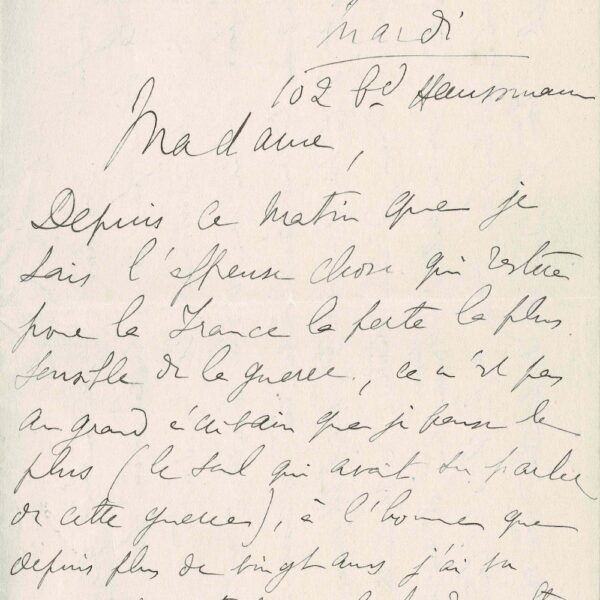 Mardi
102 bd Haussmann
Madame,
Depuis ce matin que je
sais l'affreuse chose qui restera
pour la France la perte la plus
sensible de la guerre, ce n'est pas
au grand écrivain que je pense le
plus (le seul qui avait su parler
de cette guerre), à l'homme que
depuis plus de vingt ans j'ai vu